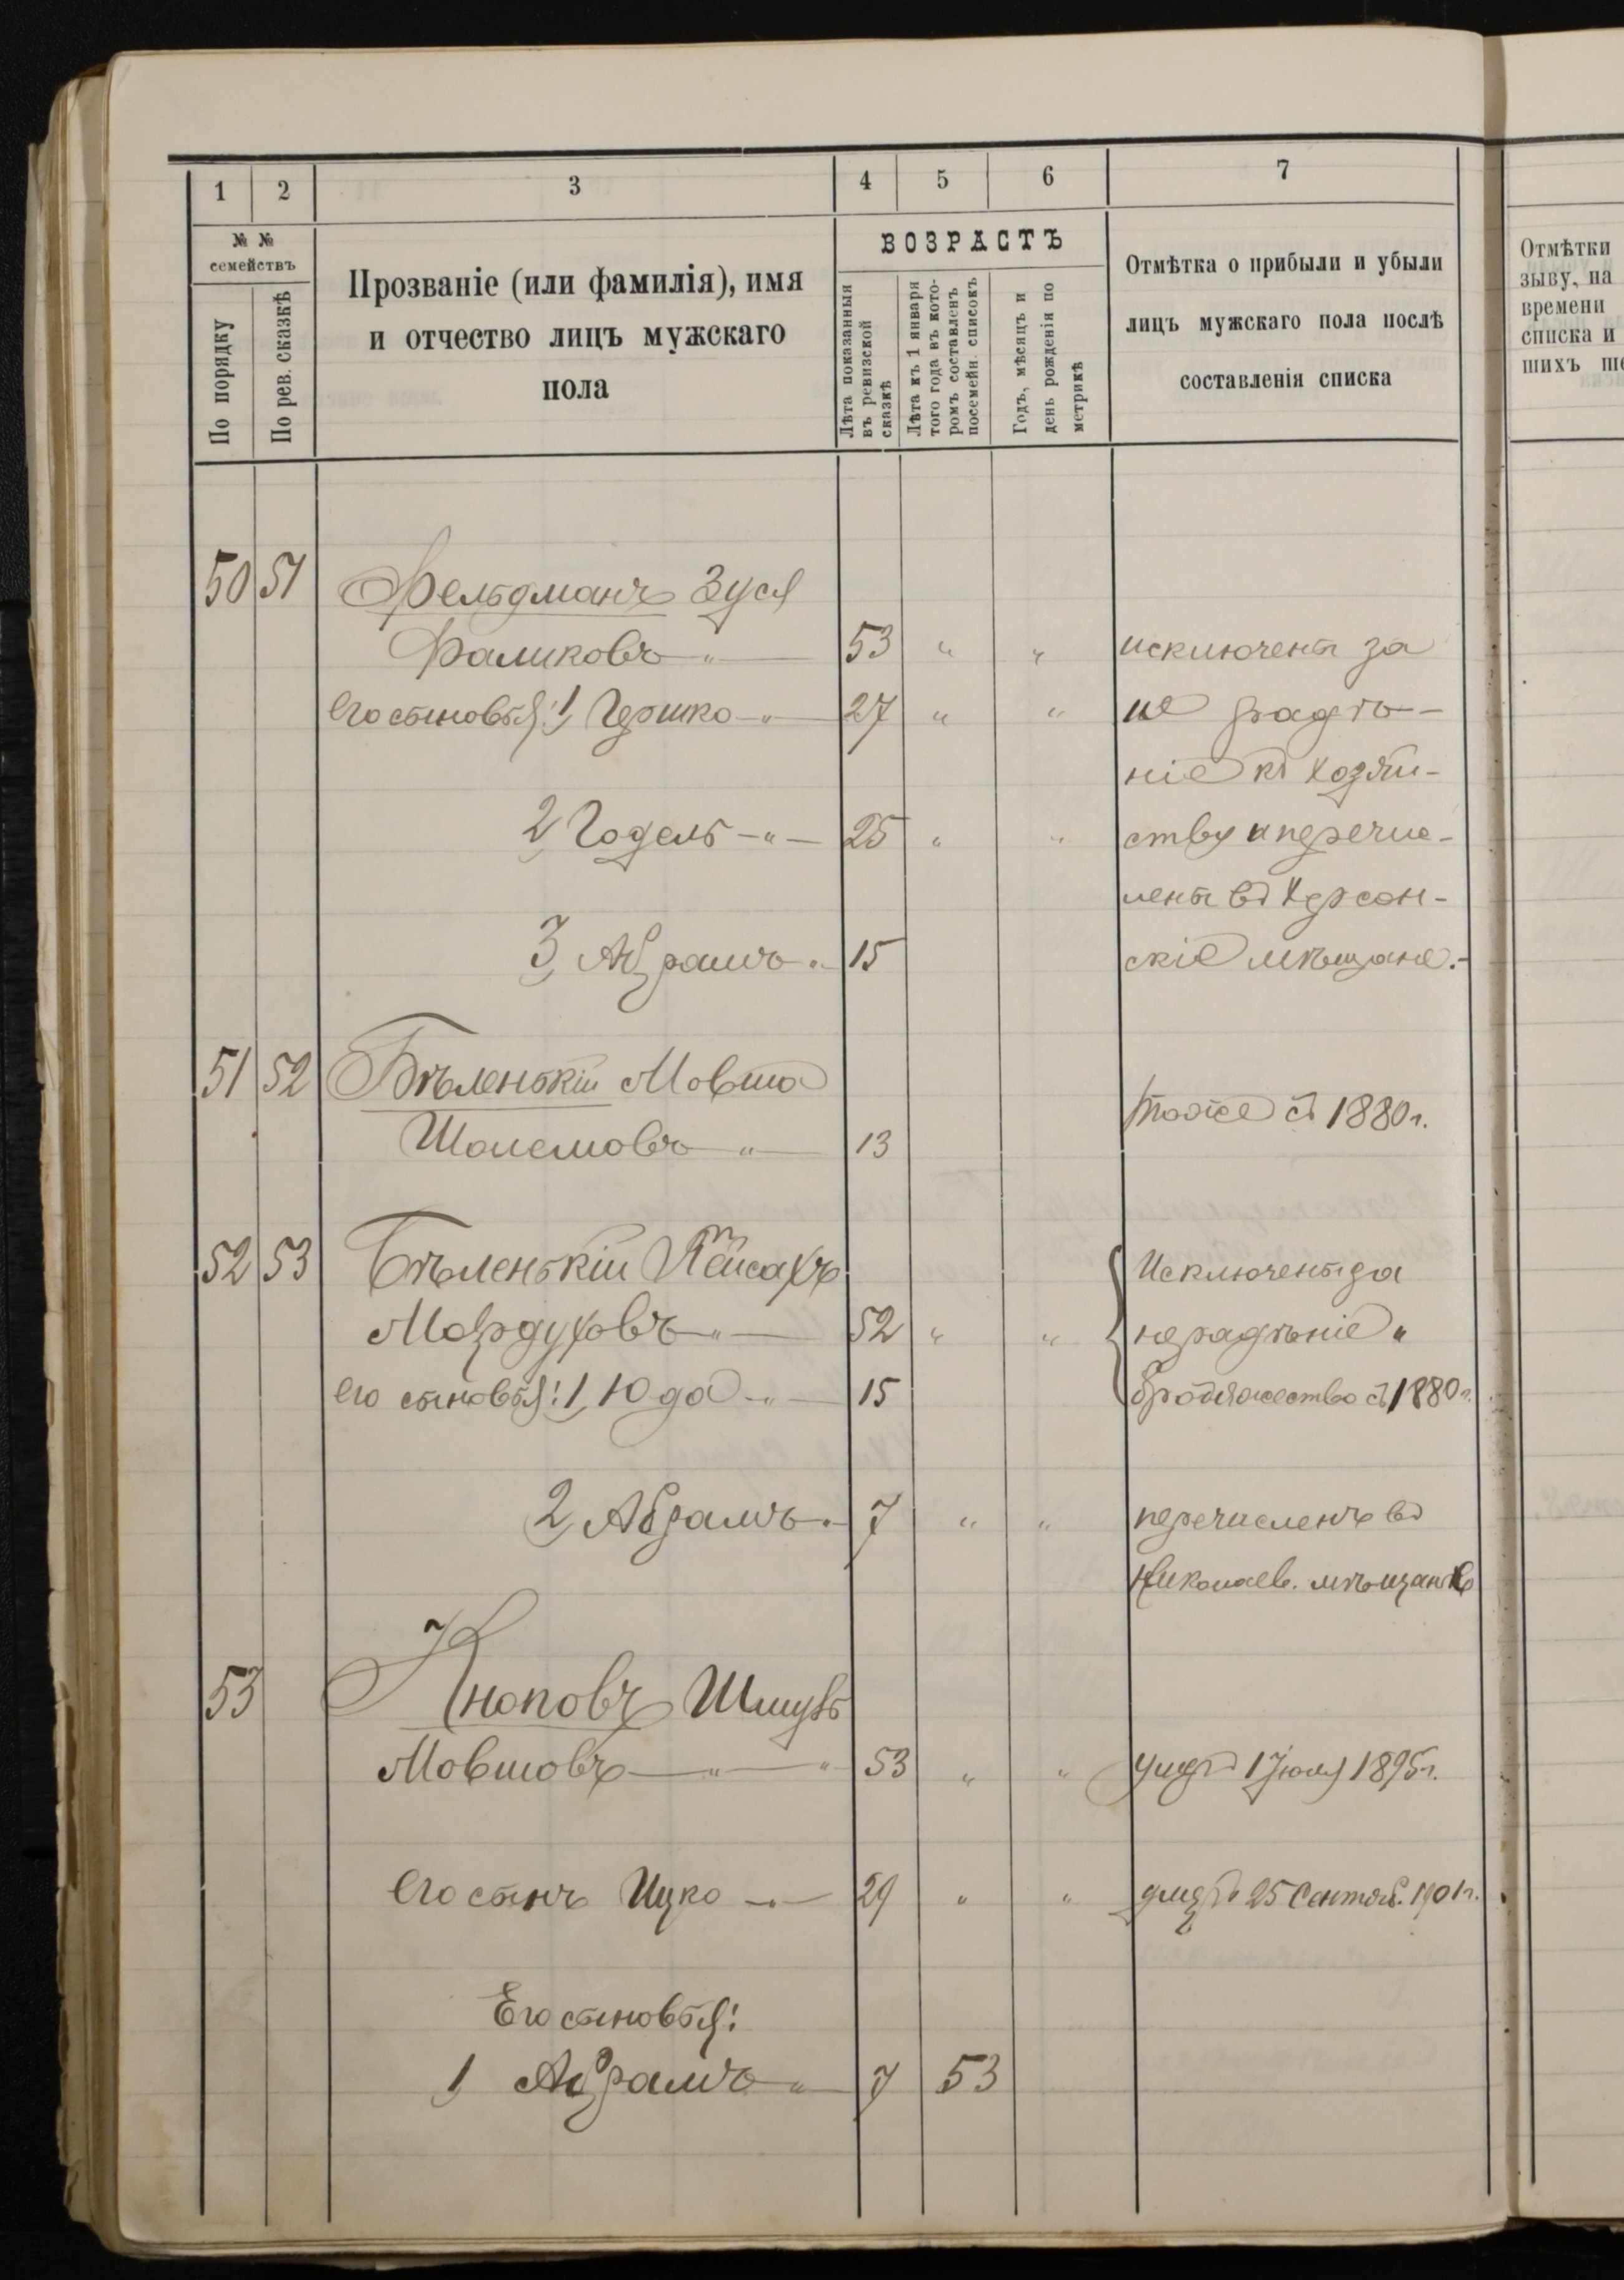 1 2 3 4 5 6 7
№ № семействъ
По порядку
По рев. сказкѣ
Прозваніе (или фамилія), имя
и отчество лицъ мужскаго
пола
ВОЗРАСТЪ
Лѣта показанныя
въ ревизской
сказкѣ
Лѣта къ 1 января
того года въ кото-
ромъ составленъ
посемейн. списокъ
Годъ, мѣсяцъ и
день рожденія по
метрикѣ
Отмѣтка о прибыли и убыли
лицъ мужскаго пола послѣ
составленія списка
Отмѣтки
зыву, на
времени
списка и
шихъ
50 51 Фельдманъ Зуся
Фаликовъ " 53 " " исключенъ за
его сыновья: 1, Гершко " 27 " " не радѣ-
ніе къ хозяй-
2, Годель " 25 " " ству и перечис-
ленъ въ Херсон-
3, Абрамъ " 15 скіе мѣщане.-
51 52 Бѣленькій Мовша
тоже съ 1880 г.
Шолемовъ " 13
52 53 Бѣленькій Пейсахъ
Исключены за
Мордуховъ " 52 " " нерадѣніе и
его сыновья: 1, Юда " 15 бродяжество съ 1880 г.
2, Абрамъ " 7 " " перечисленъ въ
Николаев. мѣщане
53 Кноповъ Шмуль
Мовшовъ " " 53 " " умеръ 17 Іюля 1895 г.
его сынъ Ицко " 29 " " умеръ 25 Сентяб. 1901 г.
Его сыновья:
1, Абрамъ " 7 53